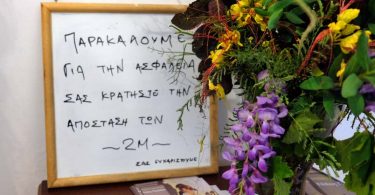 ΠΑΡΑΚΑΛΟΥΜΕ
ΓΙΑ ΤΗΝ ΑΣΦΑΛΕΙΑ
ΣΑΣ ΚΡΑΤΗΣΤΕ ΤΗΝ
ΑΠΟΣΤΑΣΗ ΤΩΝ
~2Μ~
ΣΑΣ ΕΥΧΑΡΙΣΤΟΥΜΕ